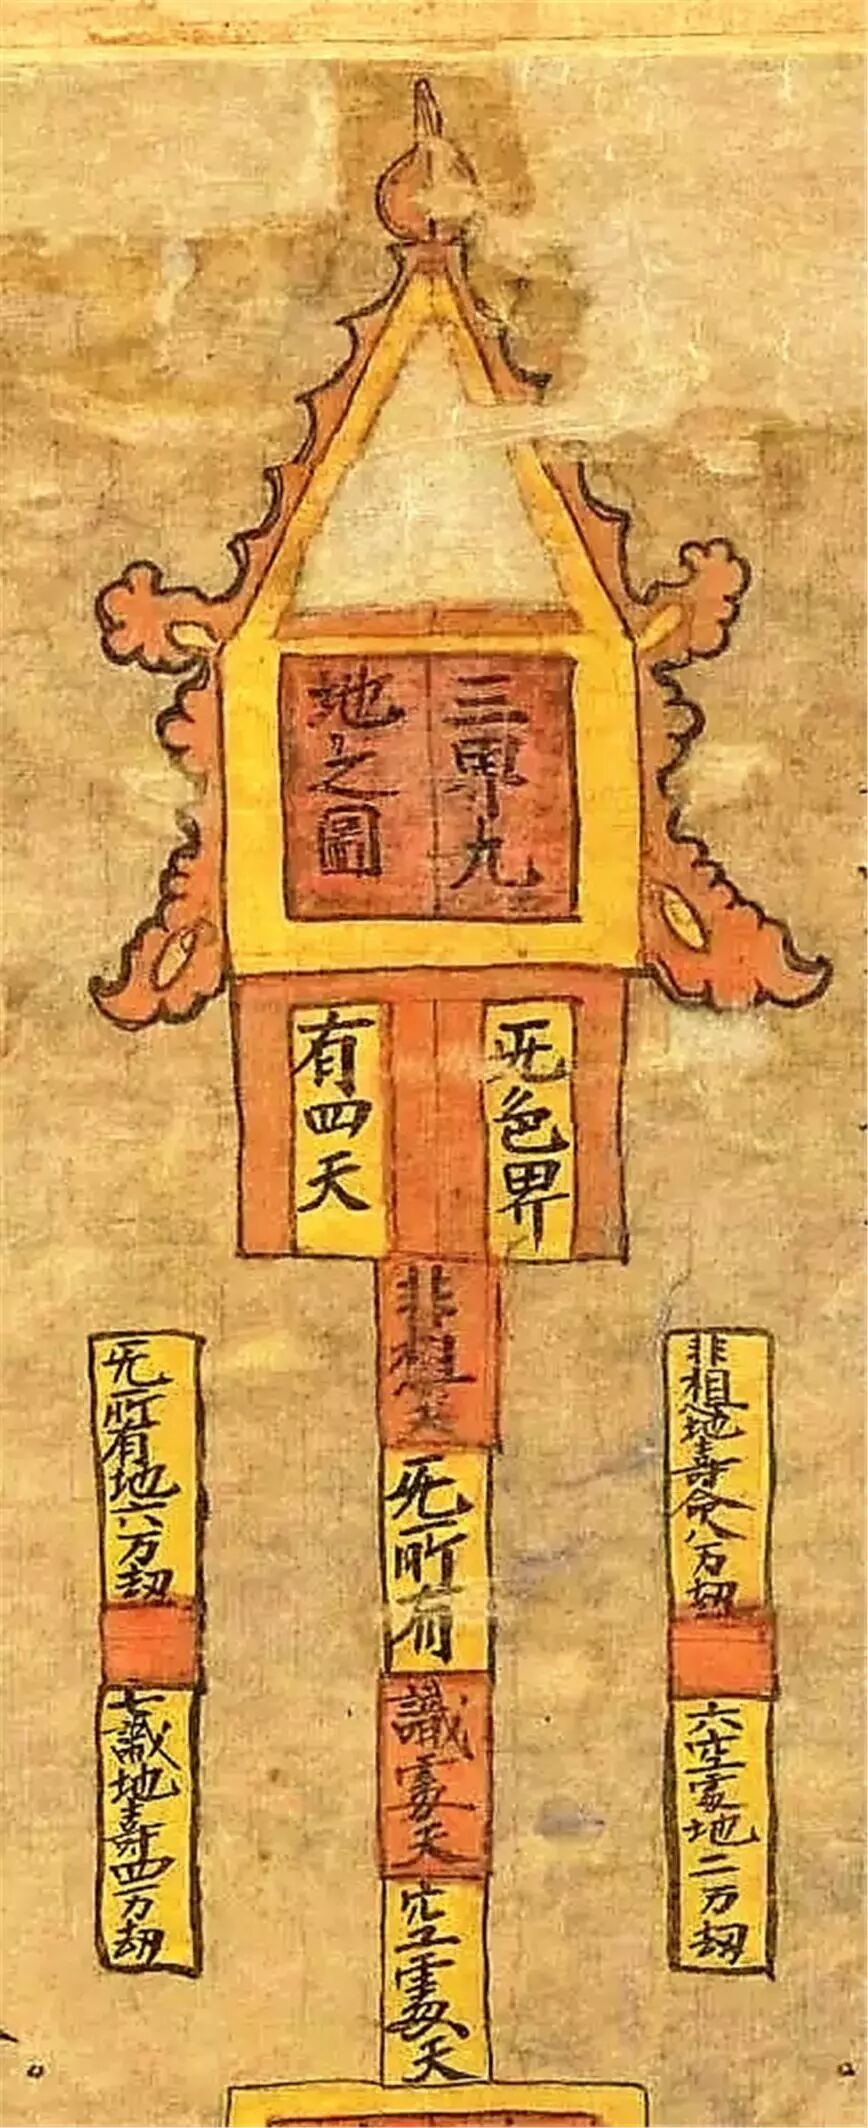 三界九
地之圖
无色界
有四天
非想天
无所有
識處天
空處天
非想地壽命八万劫
六空處地二万劫
无所有地六万劫
七識地壽四万劫